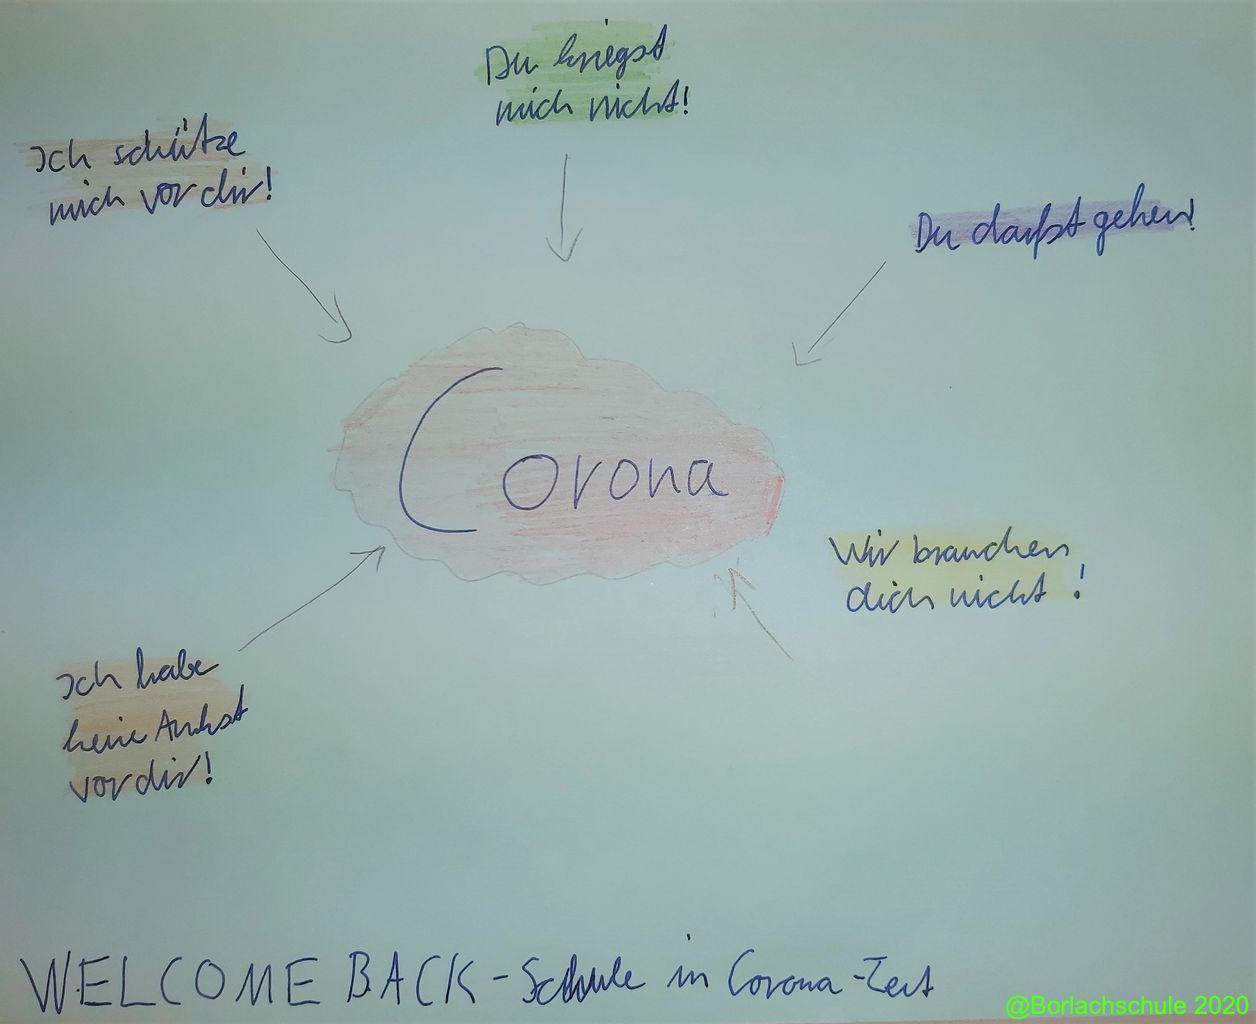 Du kriegst
mich nicht!
Ich schütze
mich vor dir!
Du darfst gehen!
Corona
Wir brauchen
dich nicht!
Ich habe
keine Ankst
vor dir!
WELCOME BACK - Schule in Corona-Zeit
@Borlachschule 2020